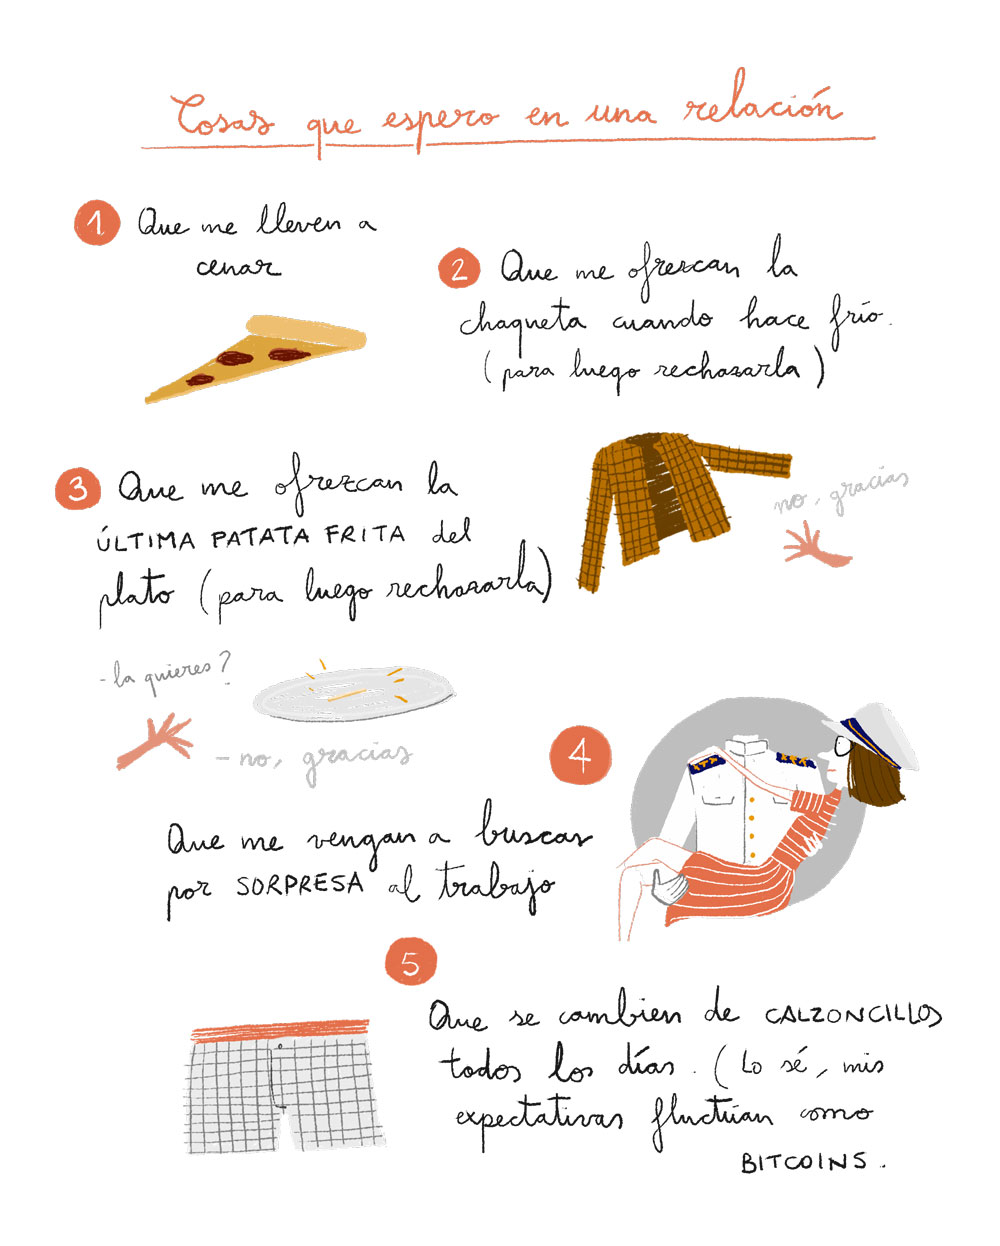 Cosas que espero en una relación
1 Que me lleven a
cenar
2 Que me ofrezcan la
chaqueta cuando hace frío.
(para luego rechazarla)
no, gracias
3 Que me ofrezcan la
ÚLTIMA PATATA FRITA del
plato (para luego rechazarla)
- la quieres?
- no, gracias
4
Que me vengan a buscar
por SORPRESA al trabajo
5
Que se cambien de CALZONCILLOS
todos los días. (Lo sé, mis
expectativas fluctúan como
BITCOINS.